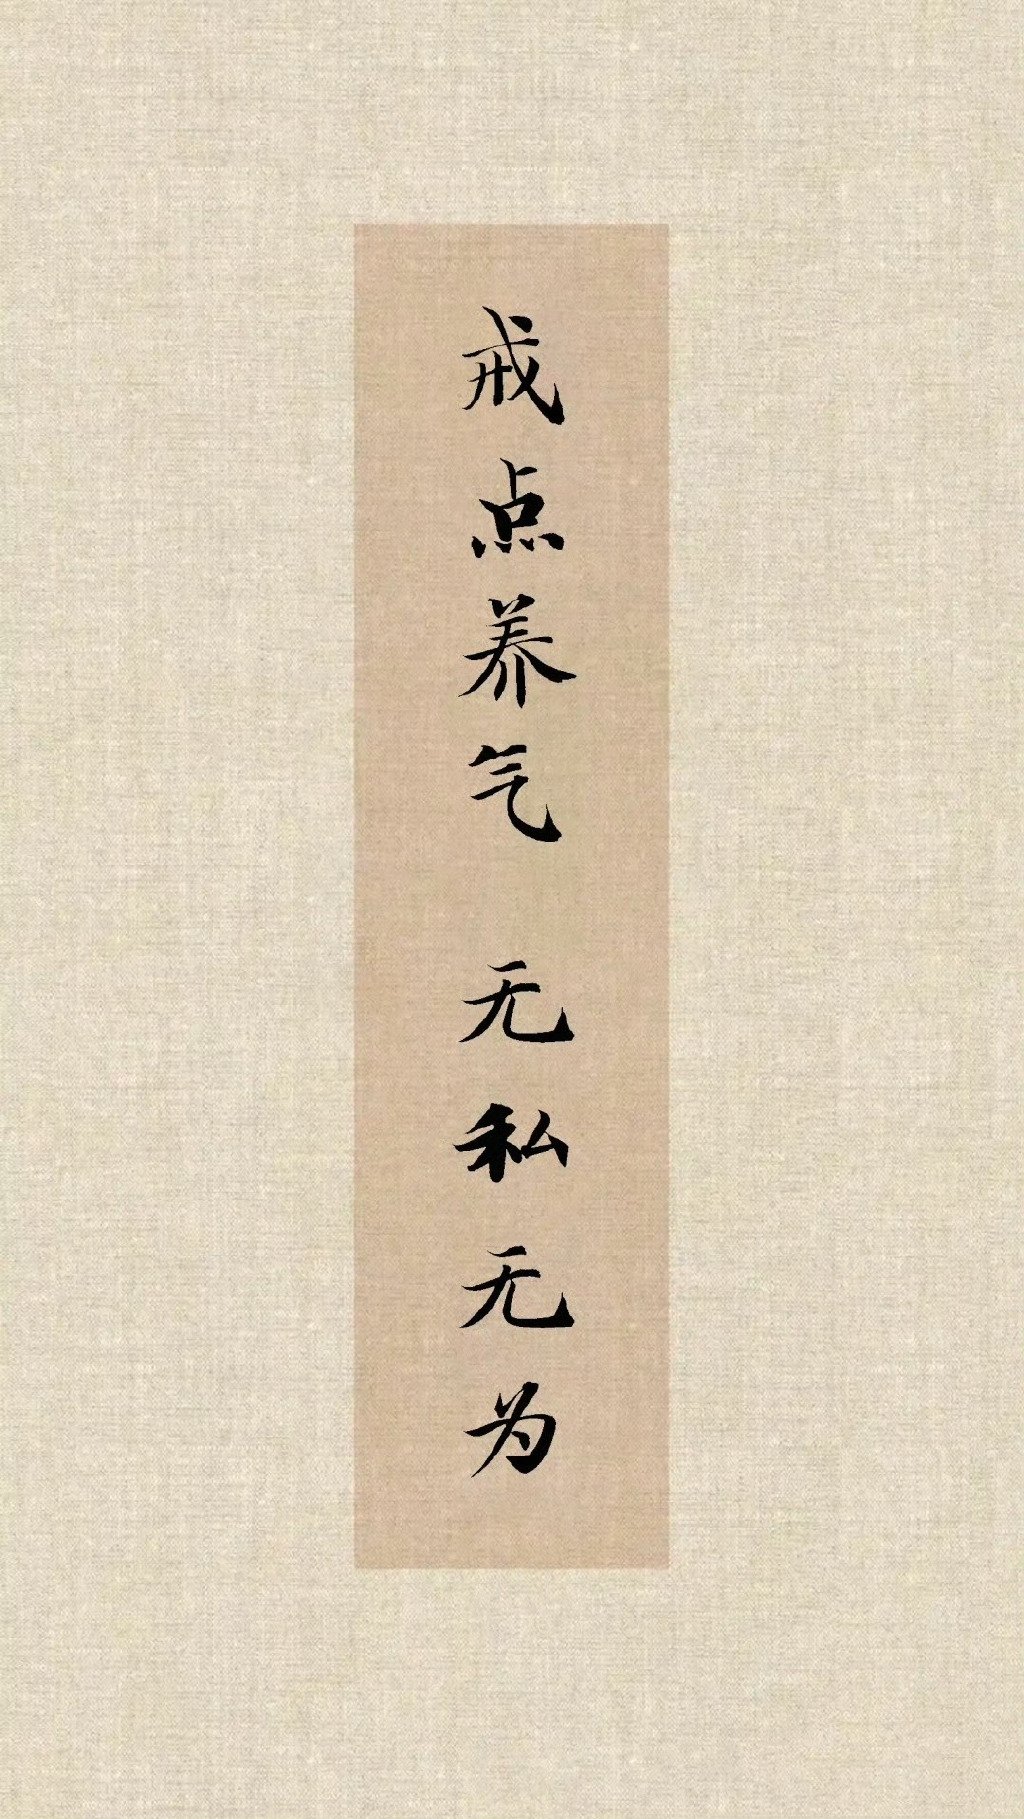 戒点养气 无私无为